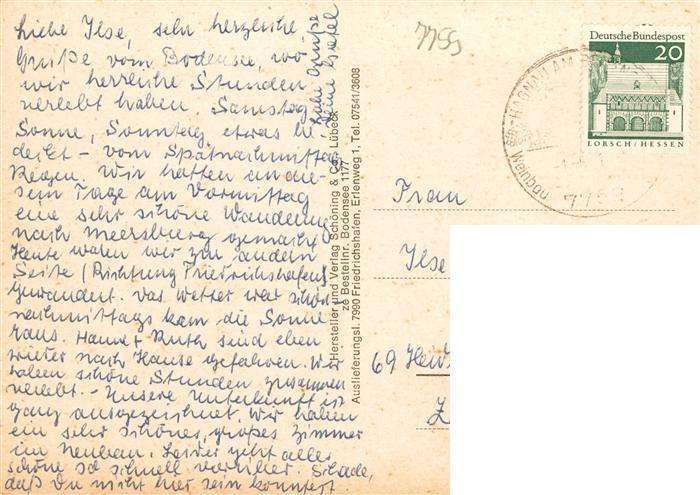 Liebe Ilse, sehr herzliche
Grüße vom Bodensee, wo
wir herrliche Stunden
verlebt haben. Samstag
Sonne, Sonntag etwas be-
deckt - vom Spätnachmittag
Regen. Wir hatten an die-
sem Tage am Vormittag
eine sehr schöne Wanderung
nach Meersburg gemacht.
Heute waren wir zur andern
Seite (Richtung Friedrichshafen)
gewandert. Das Wetter war schön
nachmittags kam die Sonne
raus. Hanne + Ruth sind eben
wieder nach Hause gefahren. Wir
haben schöne Stunden zusammen
verlebt. - Unsere Unterkunft ist
ganz ausgezeichnet. Wir haben
ein sehr schönes, großes Zimmer
im Neubau. Leider geht alles
schöne so schnell vorüber. Schade,
daß Du nicht hier sein konntest
Liebe Grüße
Deine
Hersteller und Verlag Schöning & Co., Lübeck
ze Bestellnr. Bodensee 1177
Auslieferungsl. 7990 Friedrichshafen, Erlenweg 1, Tel. 07541/3608
7759
Deutsche Bundespost
20
LORSCH/HESSEN
HAGNAU AM
775
Frau
Ilse
69 Heid